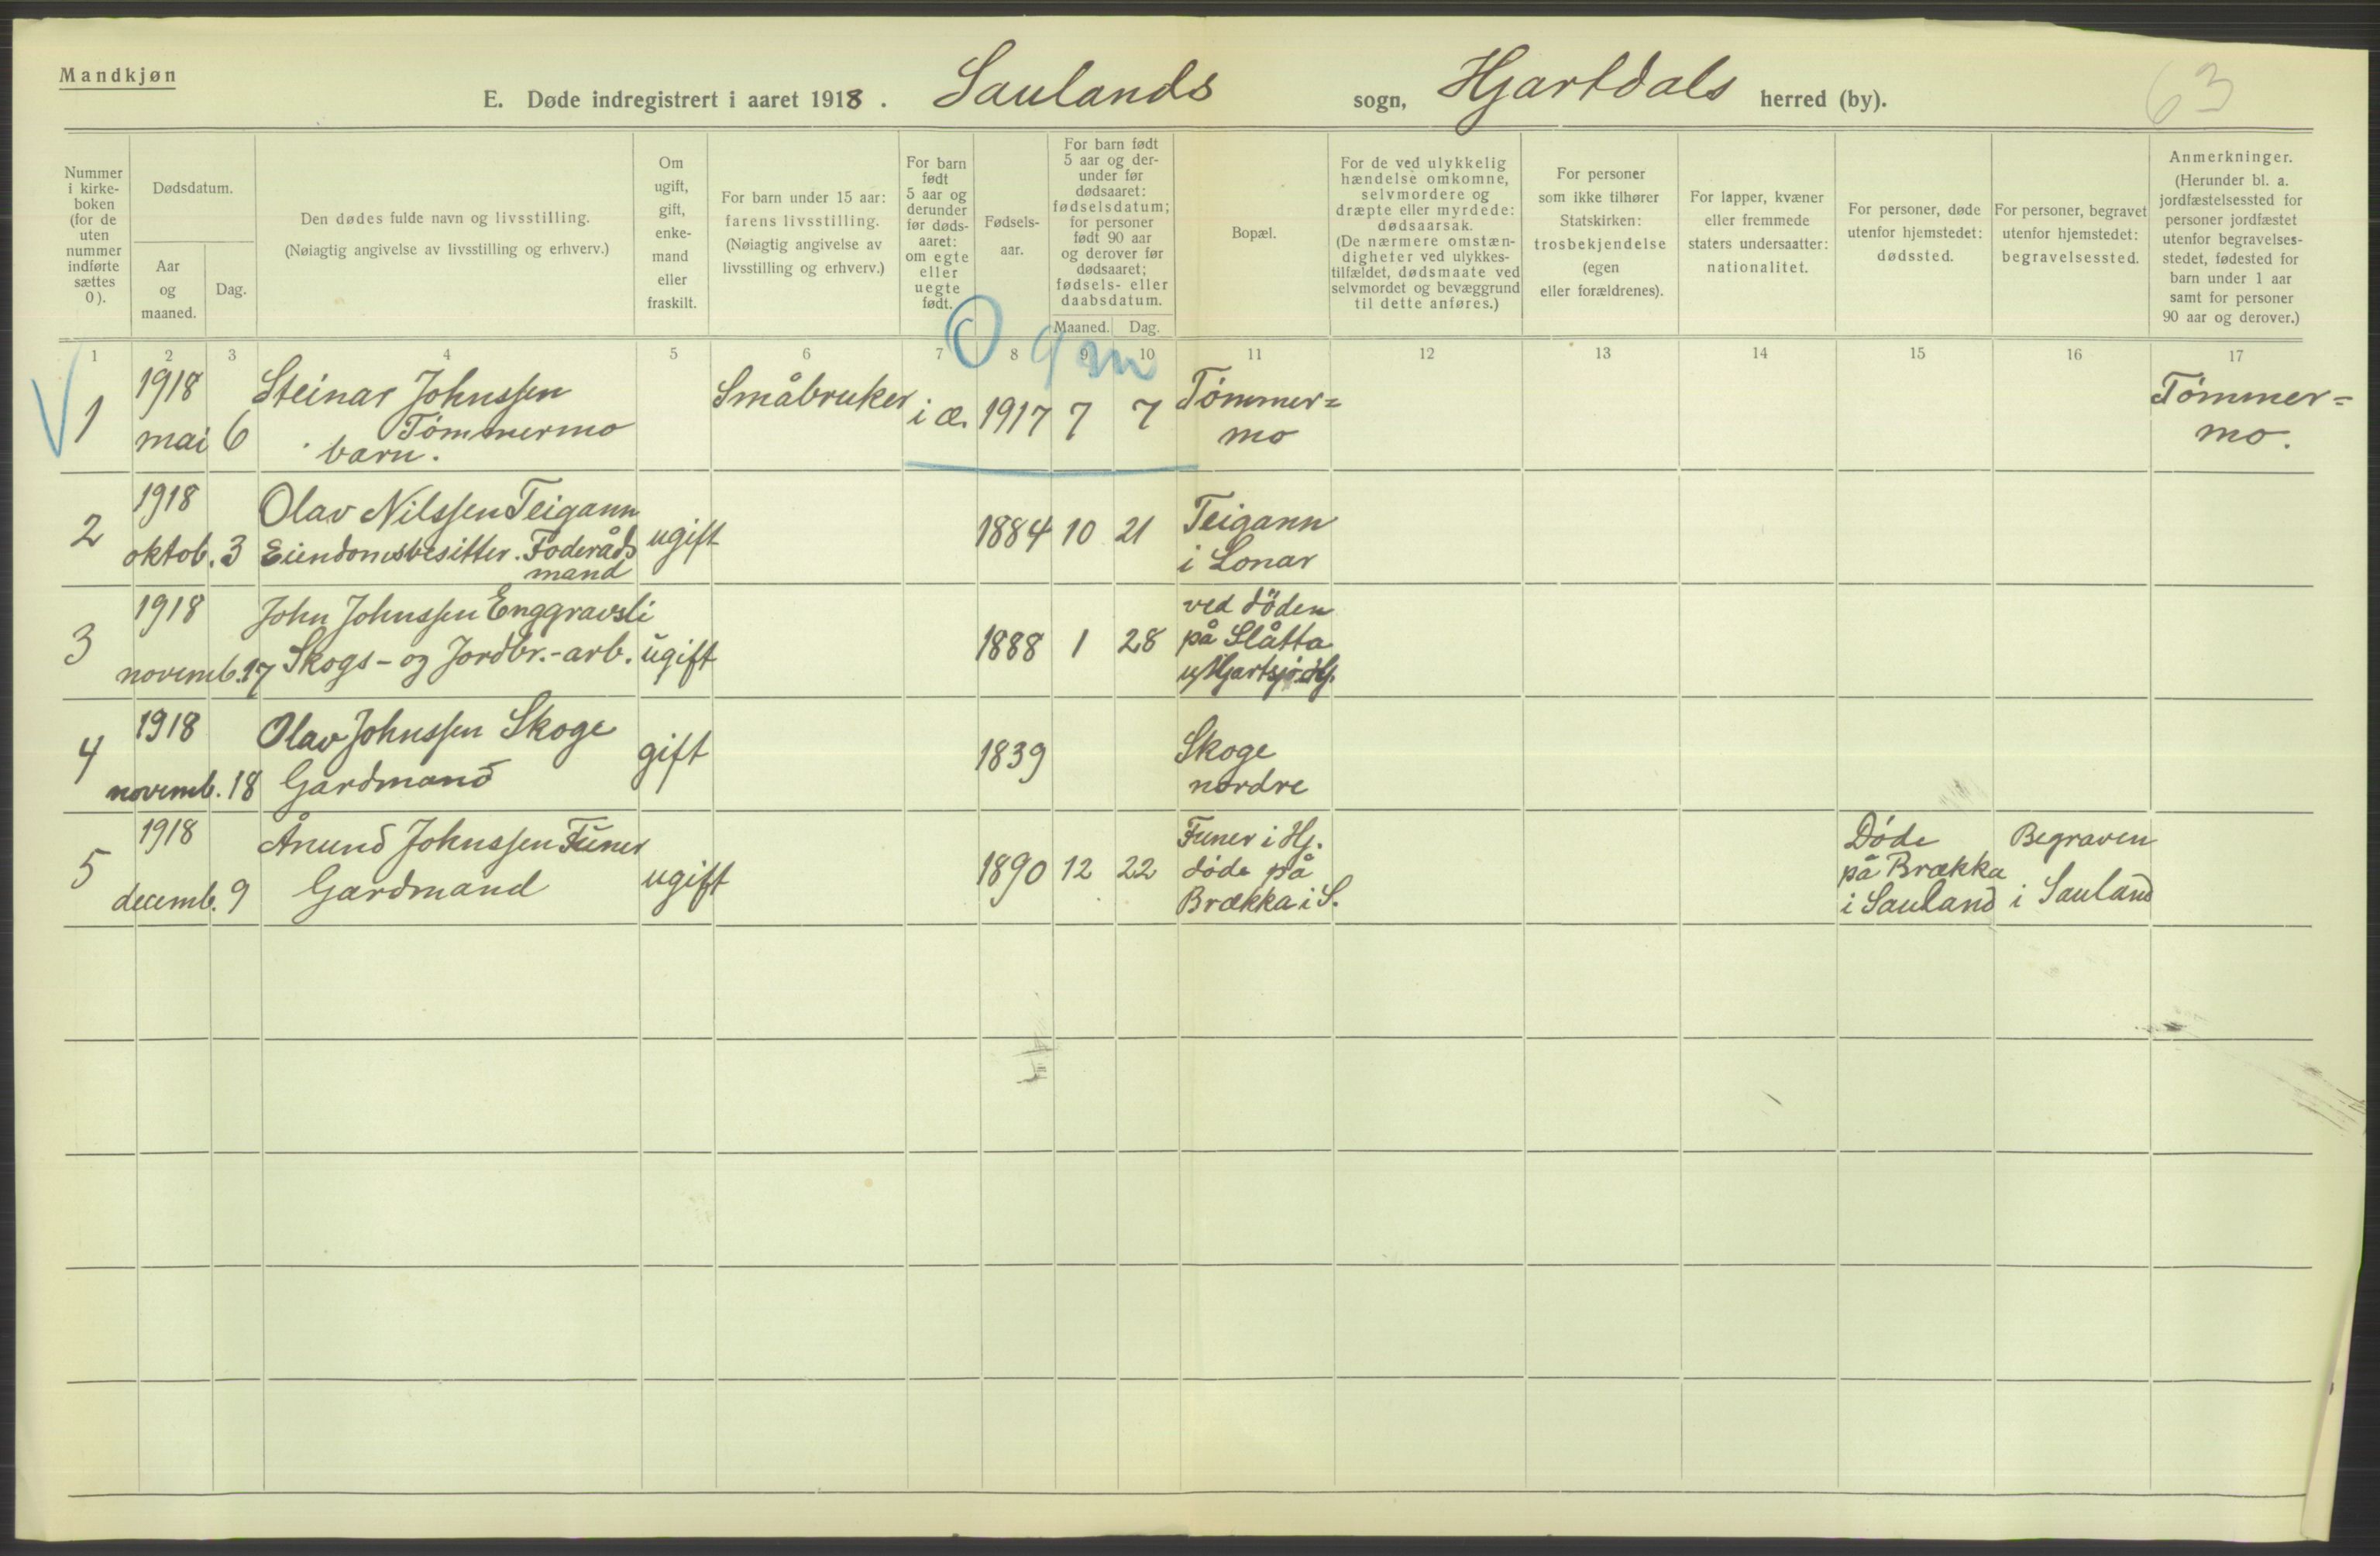 Mandkjøn
E. Døde indregistrert i aaret 1918. Saulands sogn, Hjartdals herred (by). 63
Nummer i kirke- boken (for de uten nummer indførte sættes 0).
Dødsdatum.
Aar og maaned.
Dag.
Den dødes fulde navn og livsstilling.
(Nøiagtig angivelse av livsstilling og erhverv.)
Om ugift, gift, enke- mand eller fraskilt.
For barn under 15 aar: farens livsstilling. (Nøiagtig angivelse av livsstilling og erhverv.)
For barn født 5 aar og derunder før døds- aaret: om egte eller uegte født.
Fødsels- aar.
For barn født 5 aar og der- under før dødsaaret: fødselsdatum; for personer født 90 aar og derover før dødsaaret; fødsels- eller daabsdatum.
Maaned. Dag.
Bopæl.
For de ved ulykkelig hændelse omkomne, selvmordere og dræpte eller myrdede: dødsaarsak. (De nærmere omstæn- digheter ved ulykkes- tilfældet, dødsmaate ved selvmordet og bevæggrund til dette anføres.)
For personer som ikke tilhører Statskirken: trosbekjendelse (egen eller forældrenes).
For lapper, kvæner eller fremmede staters undersaatter: nationalitet.
For personer, døde utenfor hjemstedet: dødssted.
For personer, begravet utenfor hjemstedet: begravelsessted.
Anmerkninger. (Herunder bl. a. jordfæstelsessted for personer jordfæstet utenfor begravelses- stedet, fødested for barn under 1 aar samt for personer 90 aar og derover.)
1 2 3 4 5 6 7 8 9 10 11 12 13 14 15 16 17
0 9 m
1 1918 mai 6 Steinar Johnssen Tömmermo barn. Småbruker i æ. 1917 7 7 Tömmer= mo Tömmer= mo.
2 1918 oktob. 3 Olav Nilssen Teigann Eiendomsbesitter. Foderåds mand ugift 1884 10 21 Teigann i Lonar
3 1918 novemb. 17 John Johnssen Enggravsli Skogs- og Jordbr.-arb. ugift 1888 1 28 ved döden på Slåtta u/Hjartsjö Hj.
4 1918 novemb. 18 Olav Johnssen Skoge Gardmand gift 1839 Skoge nordre
5 1918 decemb. 9 Ånund Johnssen Funer Gardmand ugift 1890 12 22 Funer i Hj. döde på Brækka i S. Döde på Brækka i Sauland Begraven i Sauland